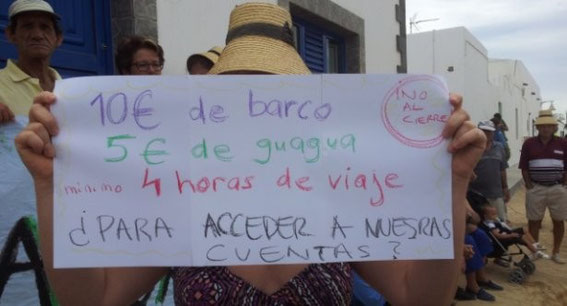 10€ de barco
¡NO
AL
CIERRE!
5€ de guagua
minimo 4 horas de viaje
¿PARA ACCEDER A NUESRAS
CUENTAS?